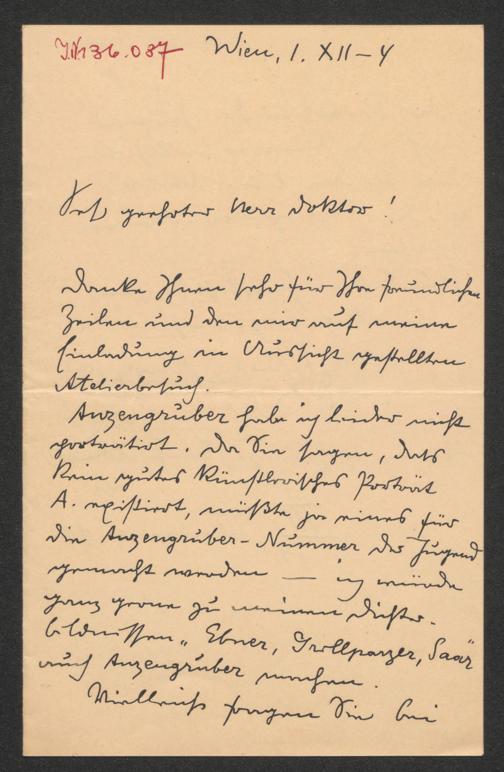 I.N. 136.037 Wien, 1. XII – 4
Sehr geehrter Herr Doktor!
Danke Ihnen sehr für Ihre freundlichen
Zeilen und den mir auf meine
Einladung in Aussicht gestellten
Atelierbesuch.
Anzengruber habe ich leider nicht
porträtirt. Da Sie sagen, dass
kein gutes künstlerisches Porträt
A. existiert, müßte ja eines für
die Anzengruber-Nummer der Jugend
gemacht werden — ich würde
ganz gerne zu meinen Dichter-
bildnissen „Ebner, Grillparzer, Saar
auch Anzengruber machen.
Vielleicht fragen Sie bei